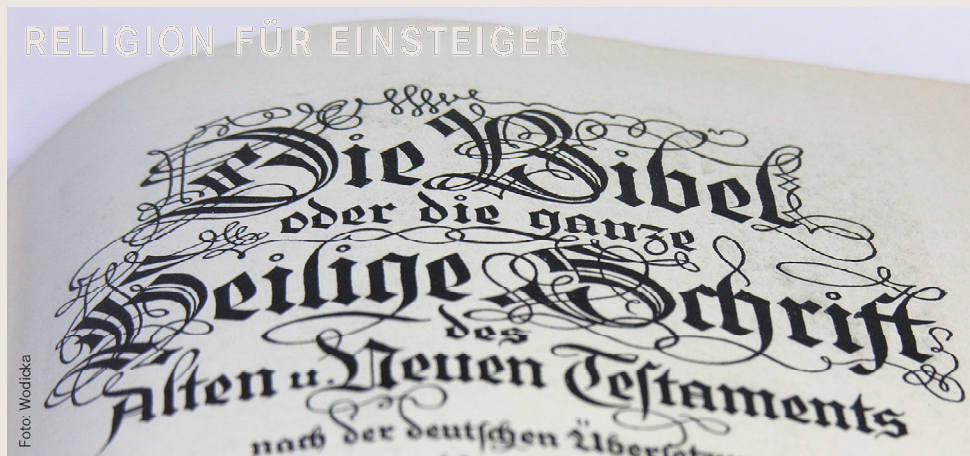 RELIGION FÜR EINSTEIGER
Die Bibel
oder die ganze
Heilige Schrift
des
Alten u. Neuen Testaments
nach der deutschen
Foto: Wodicka